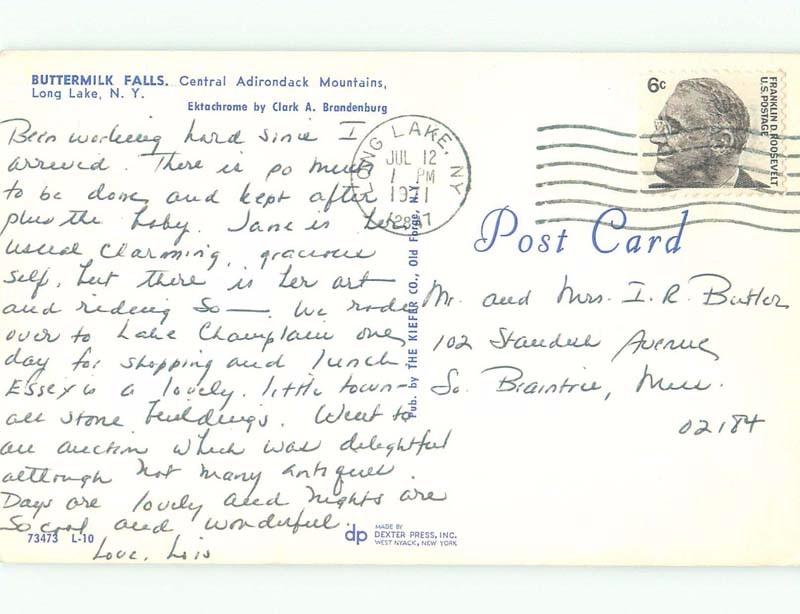 BUTTERMILK FALLS. Central Adirondack Mountains,
Long Lake, N. Y.
Ektachrome by Clark A. Brandenburg
Been working hard since I
arrived. There is so much
to be done, and kept after
plus the baby. Jane is her
usual charming, gracious
self, but there is her art
and riding So —. We rode
over to Lake Champlain one
day for shopping and lunch.
Essex is a lovely little town—
all stone buildings. Went to
an auction which was delightful
although not many antiques.
Days are lovely and nights are
so cool and wonderful.
Love, Lois
73473 L-10
LONG LAKE, NY
JUL 12
1 PM
1971
12847
6c
FRANKLIN D. ROOSEVELT
U.S. POSTAGE
Post Card
Mr. and Mrs. I. R. Butler
102 Standish Avenue
So. Braintree, Mass.
02184
Pub. by THE KIEFER CO., Old Forge, N.Y.
dp
MADE BY
DEXTER PRESS, INC.
WEST NYACK, NEW YORK